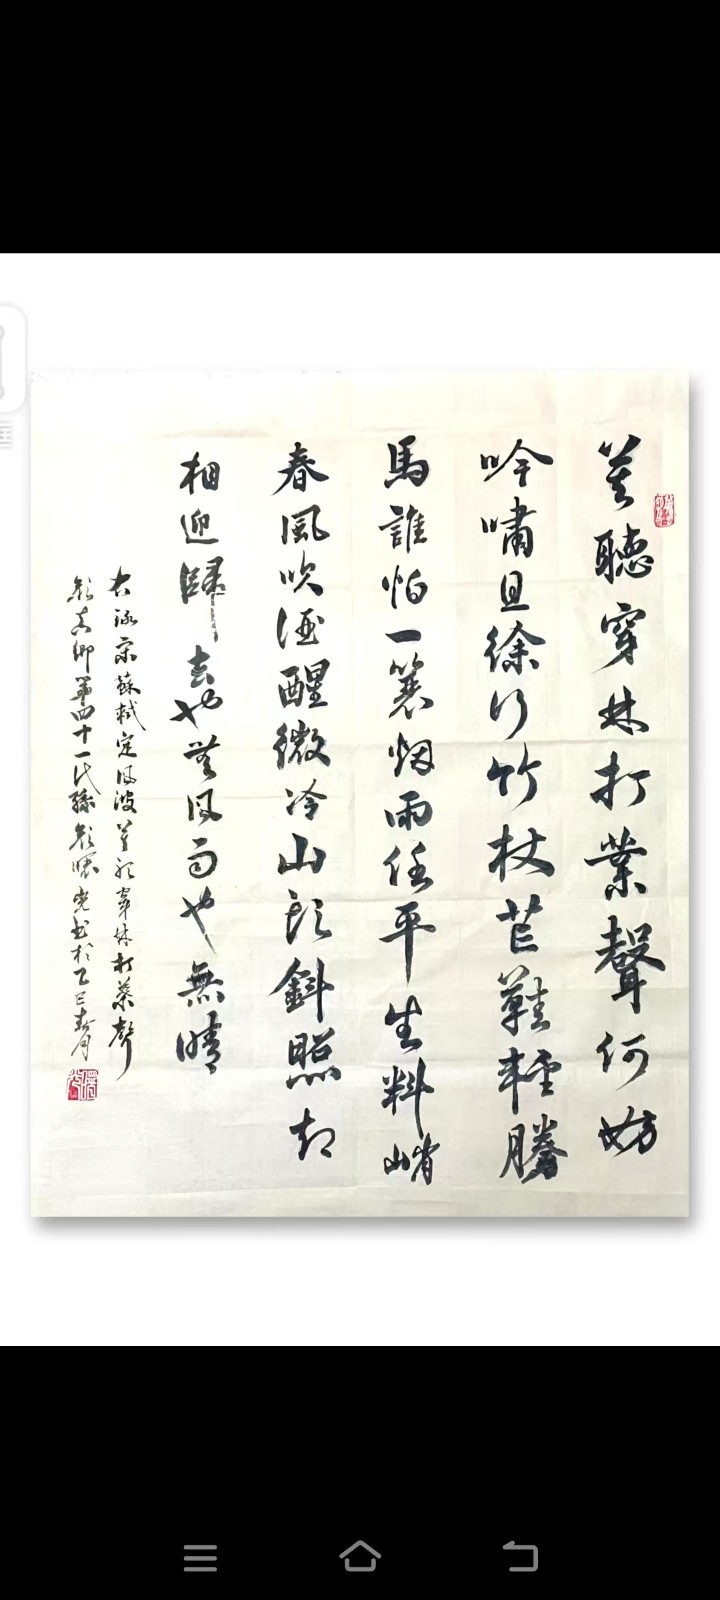 莫聽穿林打葉聲何妨
吟嘯且徐行竹杖芒鞋輕騰
馬誰怕一蓑烟雨任平生料峭
春風吹酒醒微冷山頭斜照却
相迎歸去也無風雨也無晴
右錄宋蘇軾定風波莫聽穿林打葉聲
顏真卿第四十一代孫顏書於乙巳春月